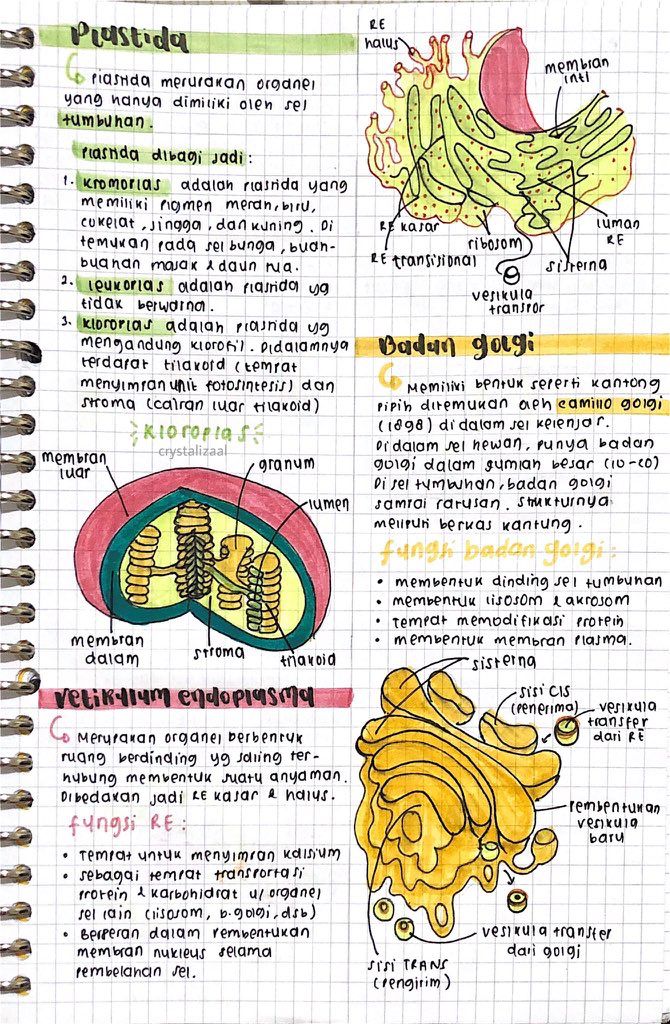 Plastida
Plastida merupakan organel
yang hanya dimiliki oleh sel
tumbuhan.
Plastida dibagi jadi:
1. Kromoplas adalah plastida yang
memiliki pigmen merah, biru,
cokelat, jingga, dan kuning. Di
temukan pada sel bunga, buah-
buahan masak & daun tua.
2. leukoplas adalah plastida yg
tidak berwarna.
3. kloroplas adalah plastida yg
mengandung klorofil. Didalamnya
terdapat tilakoid (tempat
menyimpan unit fotosintesis) dan
stroma (cairan luar tilakoid)
kloroplas
crystalizaal
membran
luar
granum
lumen
membran
dalam
stroma
tilakoid
retikulum endoplasma
Merupakan organel berbentuk
ruang berdinding yg saling ter-
hubung membentuk suatu anyaman.
Dibedakan jadi RE kasar & halus.
fungsi RE:
• Tempat untuk menyimpan kalsium
• sebagai tempat transportasi
protein & karbohidrat u/ organel
sel lain (lisosom, b.golgi, dsb)
• Berperan dalam pembentukan
membran nukleus selama
pembelahan sel.
RE
halus
membran
inti
RE kasar
ribosom
luman
RE
RE transisional
sisterna
vesikula
transpor
Badan golgi
Memiliki bentuk seperti kantong
pipih ditemukan oleh camillo golgi
(1898) didalam sel kelenjar.
Didalam sel hewan, punya badan
golgi dalam jumlah besar (10-20)
Di sel tumbuhan, badan golgi
sampai ratusan. Strukturnya
meliputi berkas kantung.
fungsi badan golgi:
• membentuk dinding sel tumbuhan
• membentuk lisosom & akrosom
• tempat memodifikasi protein
• membentuk membran plasma.
sisterna
sisi CIS
(penerima)
vesikula
transfer
dari RE
pembentukan
vesikula
baru
vesikula transfer
dari golgi
sisi TRANS
(pengirim)